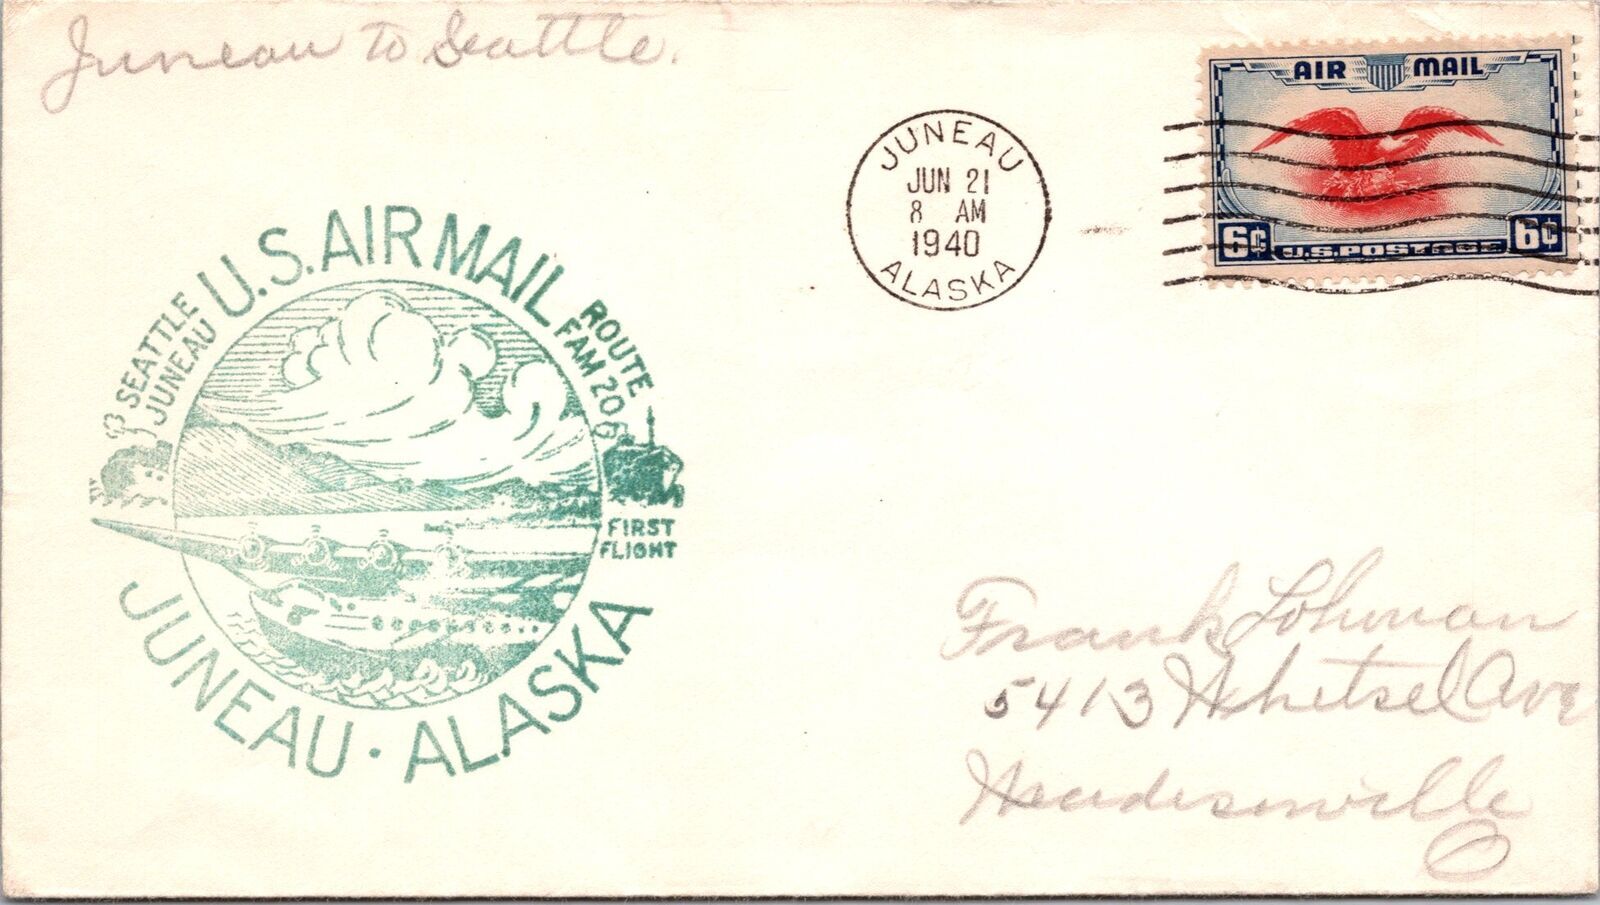 Juneau to Seattle.
AIR MAIL
6¢ U.S. POSTAGE 6¢
JUNEAU
JUN 21
8 AM
1940
ALASKA
U.S. AIR MAIL
SEATTLE
JUNEAU
ROUTE
FAM 20
FIRST
FLIGHT
JUNEAU · ALASKA
Frank Lohman
5413 Whetsel Ave
Madisonville
O